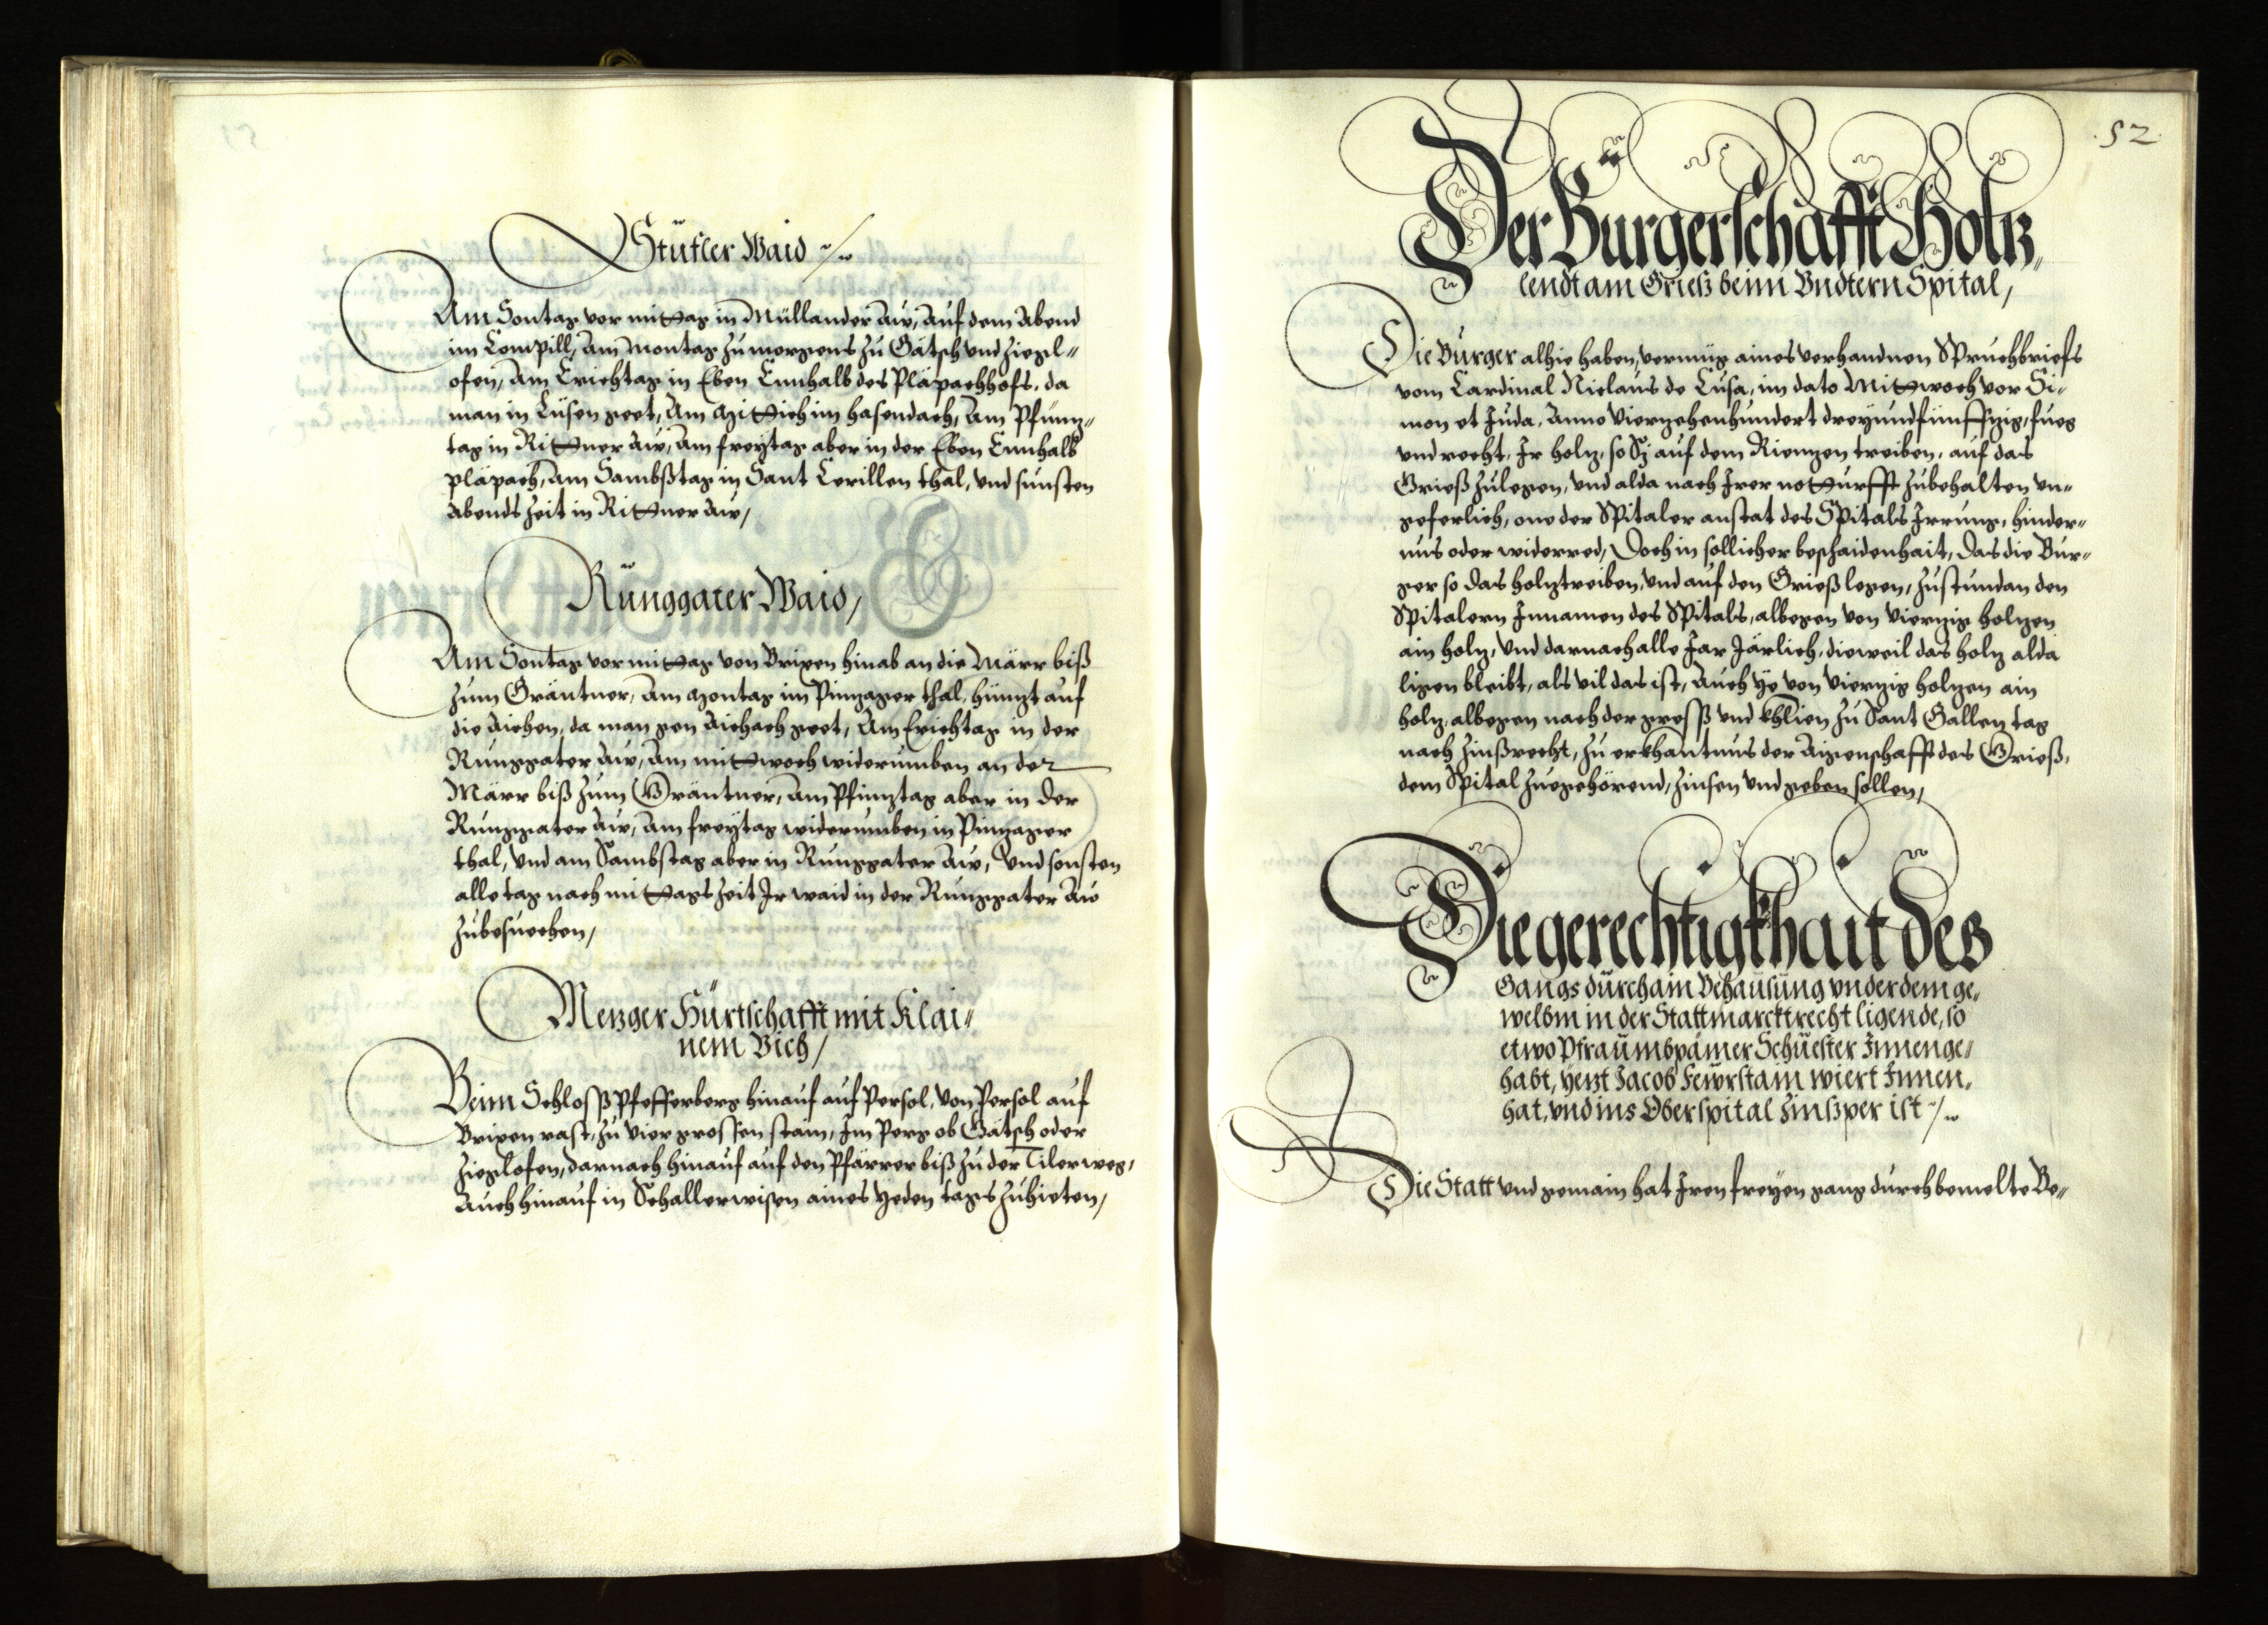 Stüfler Waid
Am Sontag vor mittag in Müllander Aw, Auf dem Abend
im Compill, Am Montag zu morgens zu Gätsch und Ziegl-
ofen, Am Erichtag in Eben Ennhalb des Pläpachhofs, da
man in Lüsen geet, Am Mittich im hasendach, Am Pfinnz-
tag in Rittner Aw, Am freytag aber in der Eben Ennhalb
pläpach, Am Sambßtag in Sant Cerillen thal, und sunsten
Abends Zeit in Rittner Aw,
Rünggater Waid,
Am Sontag vor mittag von Brixen hinab an die Märr biß
zum Gräntner, Am Montag im Pinzager thal, hinzt auf
die Aichen, da man gen Aichach geet, Am Erichtag in der
Runggater Aw, Am mittwoch widerumben an der
Märr biß zum Gräntner, Am Pfinztag aber in der
Runggater Aw, Am freytag widerumben in Pinzager
thal, Und am Sambstag aber in Runggater Aw, Und sonsten
alle tag nach mittags Zeit Ir waid in der Runggater Aw
zubesuechen,
Mezger Hürtschafft mit Klai-
nem Vich,
Beim Schloss Pfefferberg hinauf auf Persol, Von Persol auf
Brixen rast, zu Vier grossen stain, Im Perg ob Gätsch oder
Zieglofen, darnach hinauf auf den Pfarrer biß zu der Tiler weg,
Auch hinauf in Schallerwisen aines yeden tags zuhieten,
52
Der Burgerschafft Holtz
lendt am Grieß beim Undtern Spital,
Die Burger alhie haben, vermüg aines verhandnen Spruchbriefs
vom Cardinal Niclaus de Cusa, im dato Mittwoch vor Si-
mon et Juda, Anno Vierzehenhundert dreyundfünffzig, fueg
und recht, Ir holz, so Sy auf dem Riennzen treiben, auf das
Grieß zulegen, und alda nach Irer notturfft zubehalten un-
geferlich, one der Spitaler anstat des Spitals Irrung, hinder-
nus oder widerred, Doch in sollicher beschaidenhait, das die Bur-
ger so das holz treiben, und auf den Grieß legen, zustundan den
Spitalern Innamen des Spitals, albegen von Vierzig holzen
ain holz, Und darnach alle Jar Järlich, dieweil das holz alda
ligen bleibt, als vil das ist, Auch ye von Vierzig holzen ain
holz, albegen nach der gross und khlien zu Sant Gallen tag
nach Zinßrecht, zu erkhantnus der Aigenschafft des Grieß,
dem Spital zuegehörend, zinsen und geben sollen,
Die gerechtigkhait des
Gangs durch ain Behausung under dem ge-
welbm in der Stattmarcktrecht ligende, so
etwo Pfraumbpämer Schuester Innen ge-
habt, yezt Jacob Fewrstain wiert Innen-
hat, und ins Oberspital Zinßper ist
Die Statt und gemain hat Iren freyen gang durch bemelte Be-